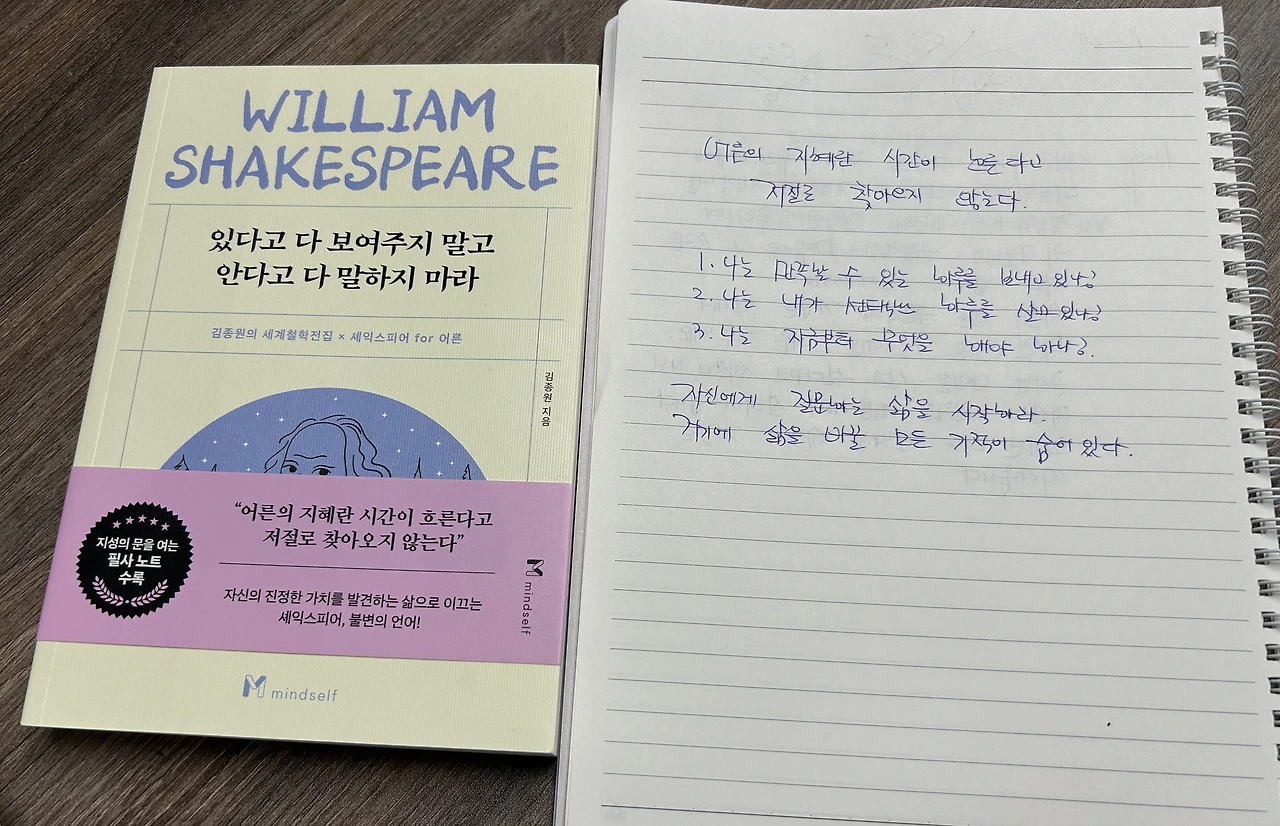 WILLIAM
SHAKESPEARE
있다고 다 보여주지 말고
안다고 다 말하지 마라
김종원의 세계철학전집 × 셰익스피어 for 어른
김종원 지음
“어른의 지혜란 시간이 흐른다고
저절로 찾아오지 않는다”
지성의 문을 여는
필사 노트
수록
자신의 진정한 가치를 발견하는 삶으로 이끄는
셰익스피어, 불변의 언어!
mindself
mindself
어른의 지혜란 시간이 흐른다고
저절로 찾아오지 않는다.
1. 나는 만족할 수 있는 하루를 보내고 있나?
2. 나는 내가 선택한 하루를 살고 있나?
3. 나는 지금부터 무엇을 해야 하나?
자신에게 질문하는 삶을 시작하라.
거기에 삶을 바꿀 모든 기적이 숨어 있다.